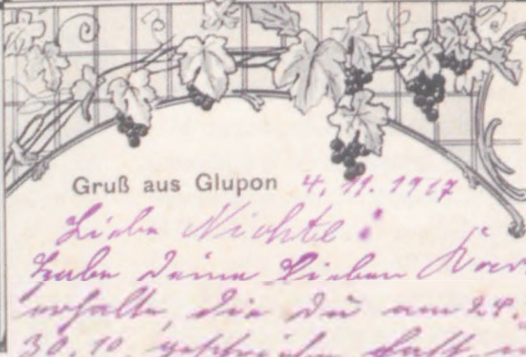 Gruß aus Glupon 4.11.1917
Liebe Nichte!
habe deine lieben
erhalte, die du am 24.
30.10. geschrieben